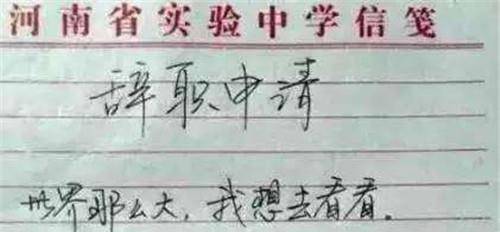 河南省实验中学信笺
辞职申请
世界那么大，我想去看看．